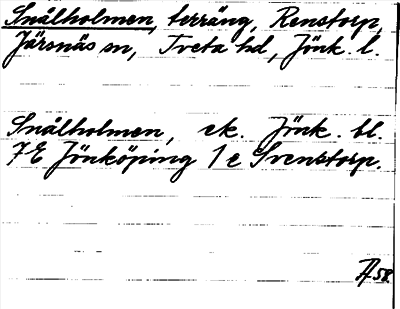 Snålholmen, terräng, Renstorp,
Järsnäs sn, Tveta hd, Jönk. l.
Snålholmen, ek. Jönk. bl.
7E Jönköping 1e Svenstorp.
58